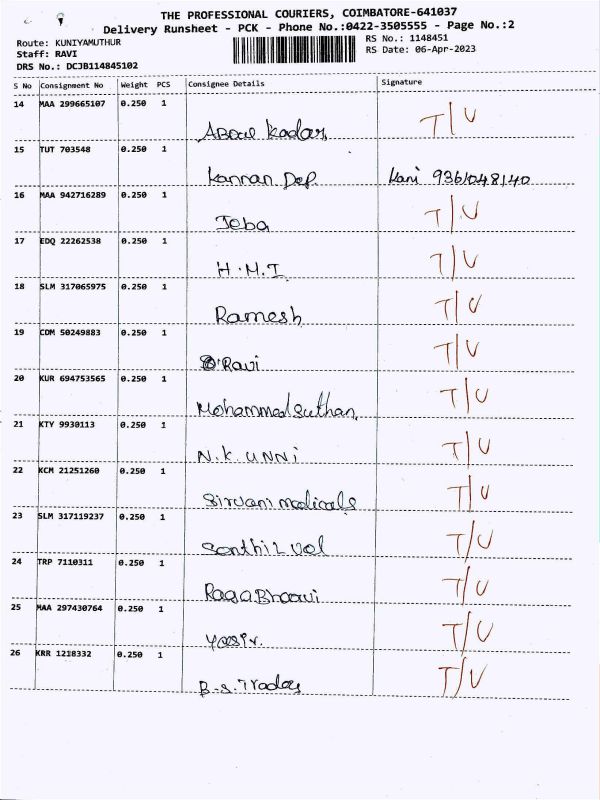 THE PROFESSIONAL COURIERS, COIMBATORE-641037
Delivery Runsheet - PCK - Phone No.:0422-3505555 - Page No.:2
Route: KUNIYAMUTHUR
RS No.: 1148451
Staff: RAVI
RS Date: 06-Apr-2023
DRS No.: DCJB114845102
S No Consignment No Weight PCS Consignee Details Signature
14 MAA 299665107 0.250 1
Abdul Kadar, T/U
15 TUT 703548 0.250 1
Kannan Dep. Kani 9361048140
16 MAA 942716289 0.250 1
Jeba T/U
17 EDQ 22262538 0.250 1
H.M.I. T/U
18 SLM 317065975 0.250 1
Ramesh T/U
19 CDM 50249883 0.250 1
Ravi T/U
20 KUR 694753565 0.250 1
Mohammed Suthan, T/U
21 KTY 9930113 0.250 1
N.K. UNNI T/U
22 KCM 21251260 0.250 1
Sirvani medicals T/U
23 SLM 317119237 0.250 1
Senthil vel T/U
24 TRP 7110311 0.250 1
T/U
25 MAA 297430764 0.250 1
T/U
26 KRR 1218332 0.250 1
B.S. Trades T/U